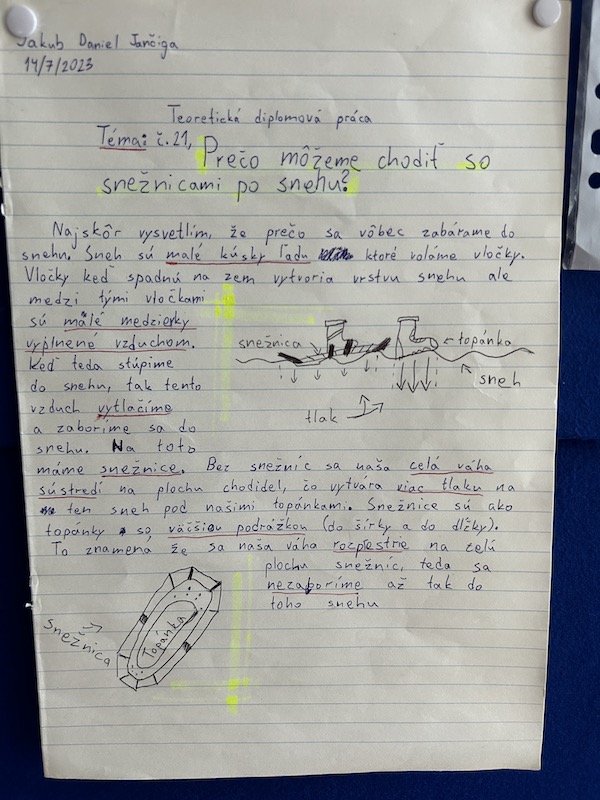 Jakub Daniel Jančiga
14/7/2023
Teoretická diplomová práca
Téma: č.21, Prečo môžeme chodiť so
snežnicami po snehu?
Najskôr vysvetlím, že prečo sa vôbec zabárame do
snehu. Sneh sú malé kúsky ľadu ktoré voláme vločky.
Vločky keď spadnú na zem vytvoria vrstvu snehu ale
medzi tými vločkami
sú málé medzierky
vyplnené vzduchom.
Keď teda stúpime
do snehu, tak tento
vzduch vytlačíme
a zaboríme sa do
snehu. Na toto
máme snežnice. Bez snežníc sa naša celá váha
sústredí na plochu chodidel, čo vytvára viac tlaku na
ten sneh pod našimi topánkami. Snežnice sú ako
topánky so väčšiou podrážkou (do šírky a do dĺžky).
To znamená že sa naša váha rozpřestrie na celú
plochu snežníc, teda sa
nezaboríme až tak do
toho snehu
snežnica
topánka
sneh
tlak
snežnica
Topánka